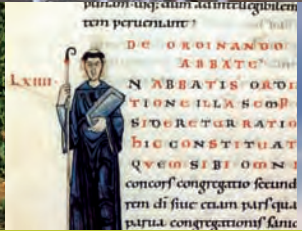 tem perueniunt?
DE ORDINANDO
ABBATE
LXIIII
N ABBATIS ORDI
TIONE ILLA SEMP
SIDERETUR RATIO
hIC CONSTITUAT
QVEM SIBI OMNI
concorſ congregatio ſecund
rem di ſiue etiam parſ qua
parua congregationiſ ſanio